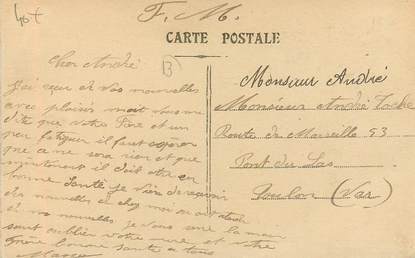 40f
F. M.
CARTE POSTALE
B
Cher André
J'ai reçu de vos nouvelles
avec plaisir mait vous me
dite que votre Père et un
peu fatiguer il faut esperer
que ce ne sera rien et que
maintenant il doit être en
bonne Santé je viens de recevoir
des nouvelles de chez moi
de vos nouvelles je vous serre la main
sant oublier votre mère et votre
Père bonne santé a tous
Monsieur André
Monsieur André
Route de Marseille 93
Pont du Las
Toulon (Var)